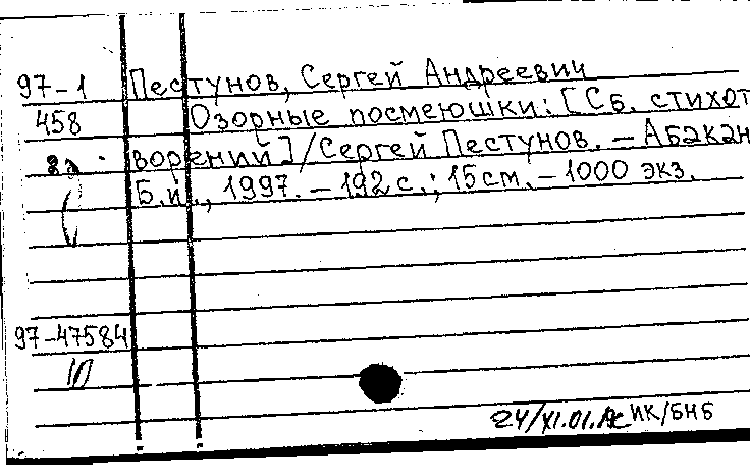 97-1 Пестунов, Сергей Андреевич
458 Озорные посмеюшки: [Сб. стихот
ворений] / Сергей Пестунов. — Абакан
Б.и., 1997. – 192 с.; 15 см. – 1000 экз.
97-47584
24/XI.01. ИК/БНБ